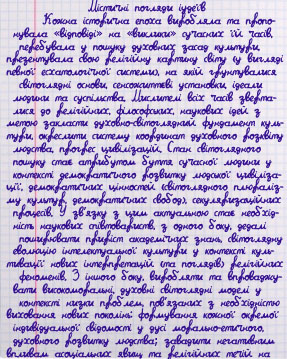 Містичні погляди іудеїв
Кожна історична епоха виробляла та пропо-
нувала «відповіді» на «виклики» сучасних їй часів,
перебувала у пошуку духовних засад культури,
презентувала свою релігійну картину світу (у вигляді
певної есхатологічної системи), на якій ґрунтувалися
світоглядні основи, сенсожиттєві установки, ідеали
людини та суспільства. Мислителі всіх часів зверта-
лися до релігійних, філософських, наукових ідей з
метою закласти духовно-світоглядний фундамент куль-
тури, окреслити систему координат духовного розвитку
людства, прогрес цивілізацій. Стан світоглядного
пошуку стає атрибутом буття сучасної людини у
контексті демократичного розвитку людської цивіліза-
ції, демократичних цінностей (світоглядного плюраліз-
му культур, демократичних свобод), секуляризаційних
процесів. У зв'язку з цим актуальною стає необхід-
ність наукових співтовариств, з одного боку, дедалі
поширювати приріст академічних знань, світоглядну
еволюцію інтелектуальної культури у контексті куль-
тивації нових інтерпретацій та поглядів, релігійних
феноменів. З іншого боку, виробляти та впроваджу-
вати високоморальні, духовні світоглядні моделі у
контексті низки проблем, пов'язаних з необхідністю
виховання нових поколінь: формування кожної окремої
індивідуальної свідомості у дусі морально-етичного,
духовного розвитку людства; завадити негативним
впливам асоціальних явищ та релігійних течій на